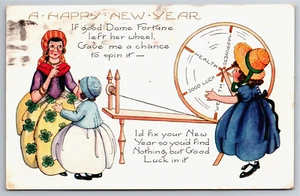 A·HAPPY NEW·YEAR
If good Dame Fortune
left her wheel,
Gave me a chance
to spin it —
HEALTH
GOOD LUCK
I'd fix your New
Year so you'd find
Nothing but Good
Luck in it